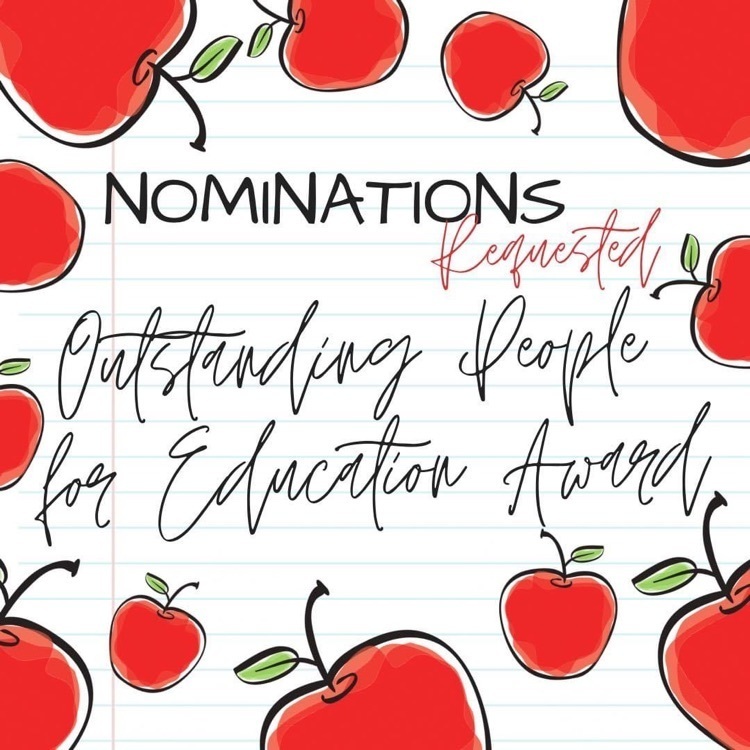 NOMINATIONS
Requested
Outstanding People
for Education Award